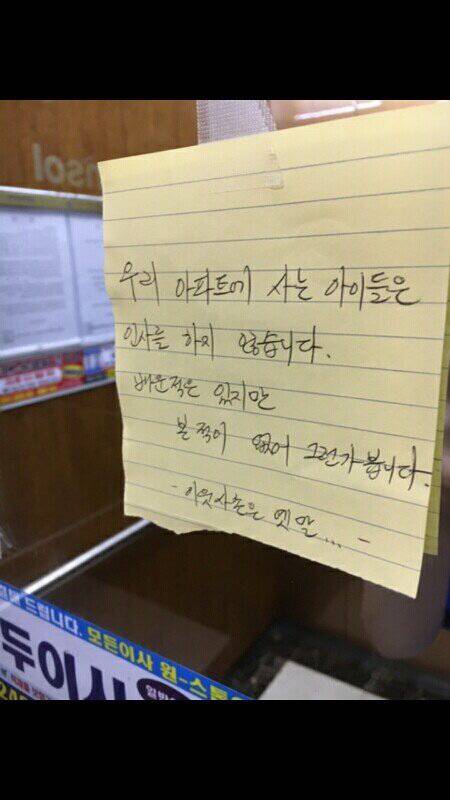 우리 아파트에 사는 아이들은
인사를 하지 않습니다.
배운적은 있지만
본 적이 없어 그런가 봅니다.
- 이웃사촌은 옛 말... -
드립니다. 모든이사 원-스톱
두이사